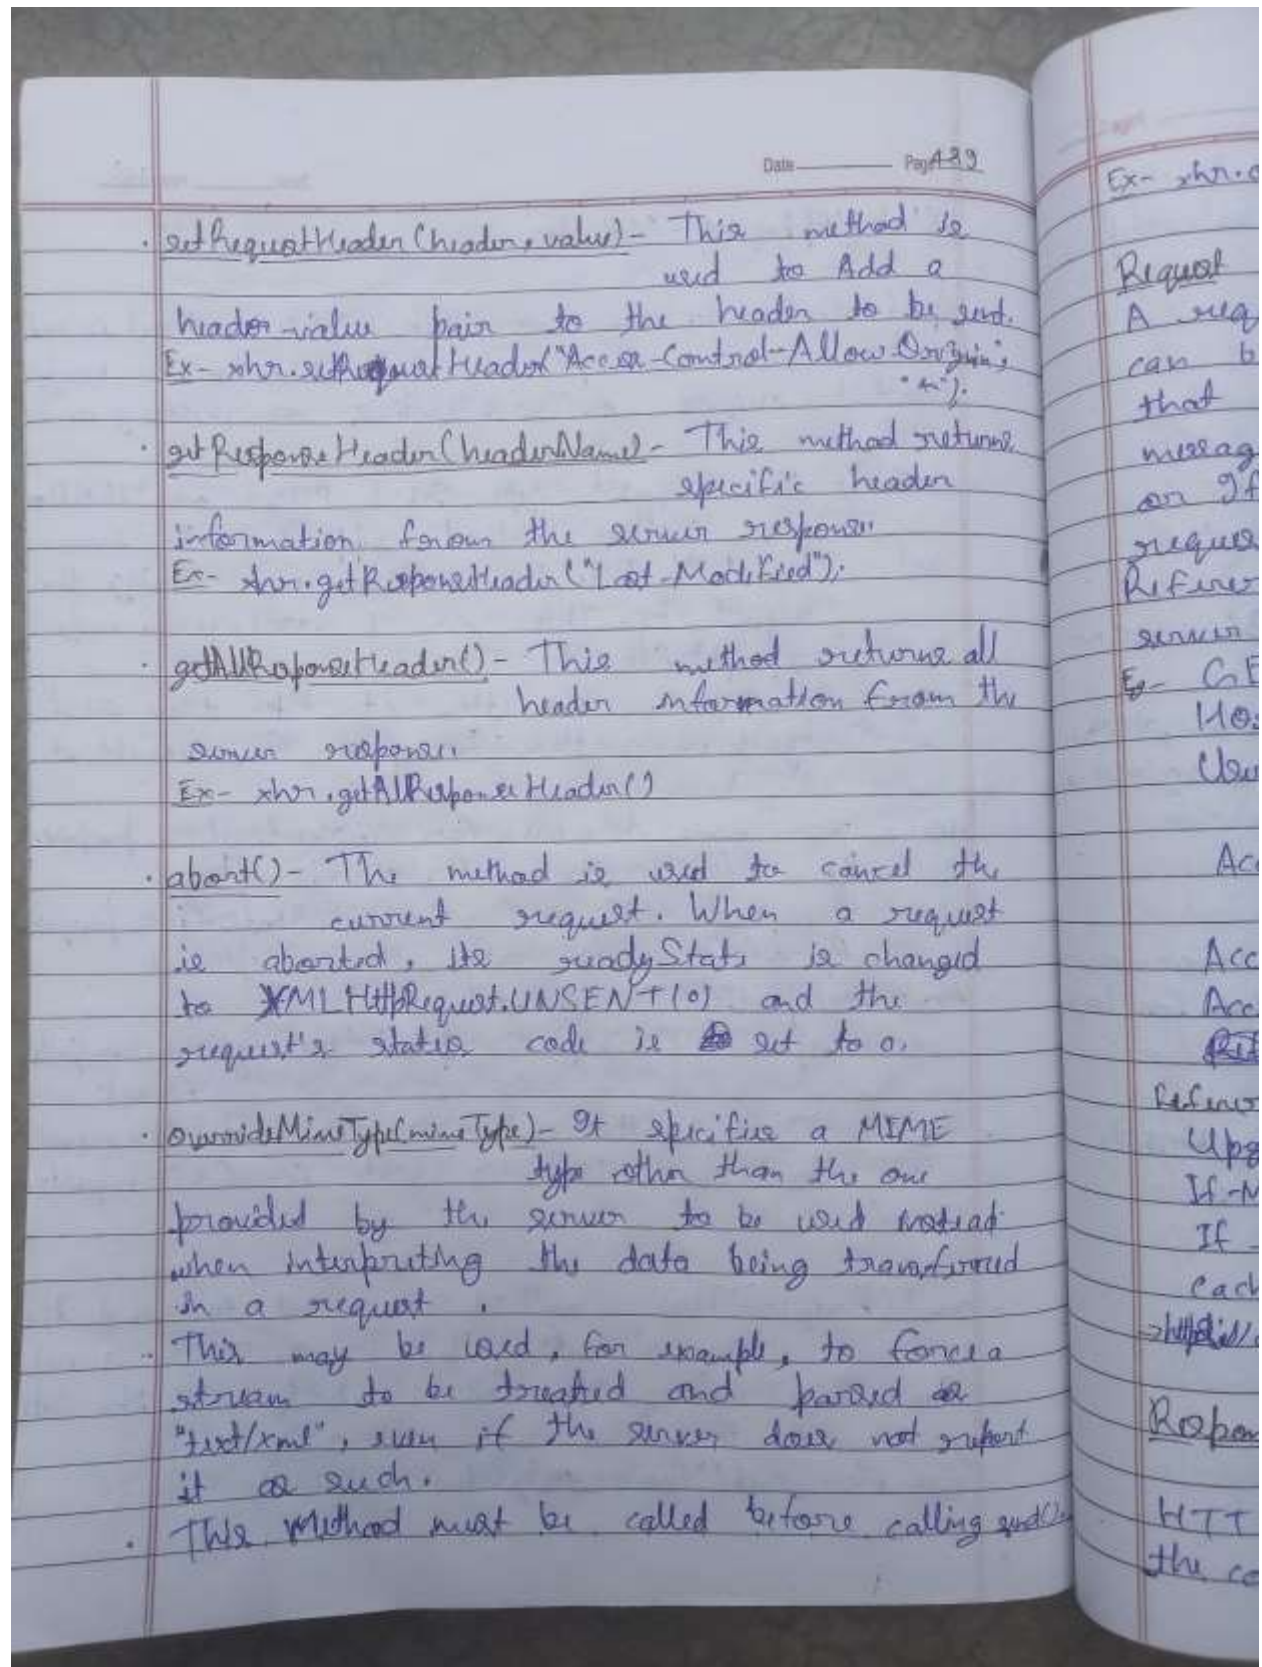 Date Page 489
. setRequestHeader(header, value) - This method is
used to Add a
header-value pair to the header to be sent.
Ex- xhr.setRequestHeader("Access-Control-Allow-Origin",
"*");
. getResponseHeader(headerName) - This method returns
specific header
information from the server response.
Ex- xhr.getResponseHeader("Last-Modified");
. getAllResponseHeader() - This method returns all
header information from the
server response.
Ex- xhr.getAllResponseHeader()
. abort() - The method is used to cancel the
current request. When a request
is aborted, its readyState is changed
to XMLHttpRequest.UNSENT(0) and the
request's status code is set to 0.
. overrideMimeType(mimeType) - It specifies a MIME
type other than the one
provided by the server to be used instead
when interpreting the data being transferred
in a request.
. This may be used, for example, to force a
stream to be treated and parsed as
"text/xml", even if the server does not report
it as such.
. This Method must be called before calling send().
Ex- xhr.o
Request
A req
can b
that
messag
or If
reques
Referer
server
Eg- GE
Hos
User
Acc
Acc
Acc
Referer
Upg
If-M
If-
Cach
Respon
HTT
the co